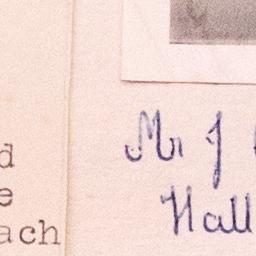 d
e
ach
Mr J
Hall